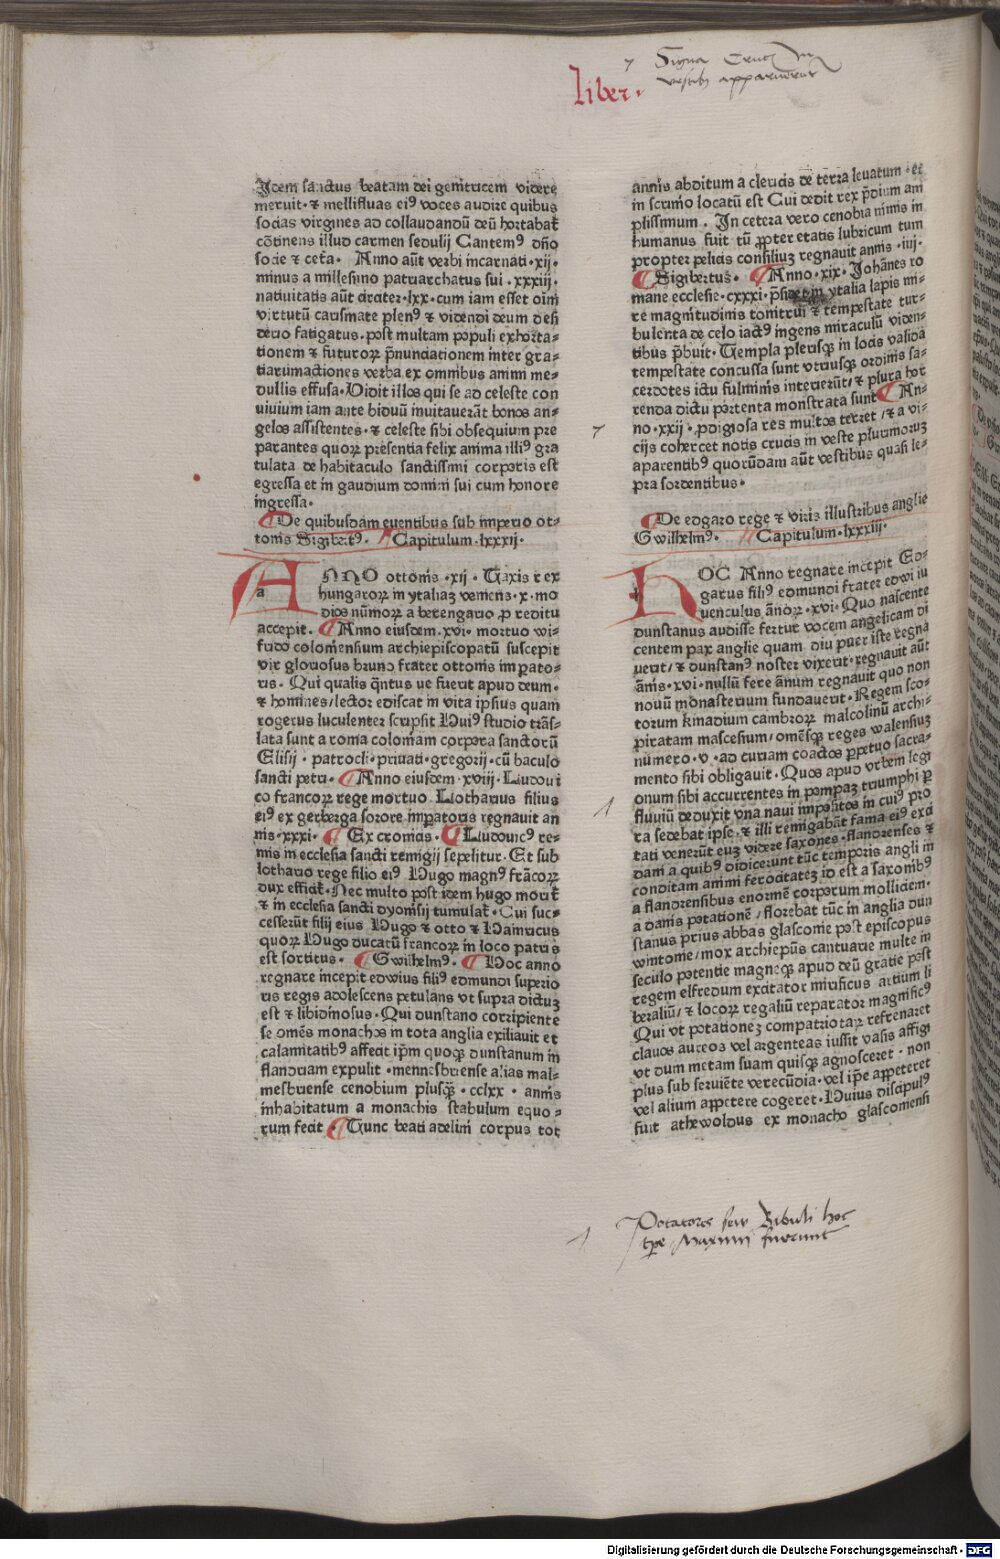 Signa Crucis in
vestib apparuerunt
liber.
Idem sanctus beatam dei genitricem videre
meruit· ⁊ mellifluas eiꝰ voces audire quibus
socias virgines ad collaudandū deū hortabat̄
cōtinens illud carmen sedulij Cantemꝰ dño
socie ⁊ ceta· Anno aūt verbi incarnati·xij·
minus a millesimo patriarchatus sui·xxxiij·
natiuitatis aūt
virtutū carismate plenꝰ ⁊ videndi deum desi
derio fatigatus·post multam populi exhorta⸗
tionem ⁊ futuroꝝ p̄nunciationem inter gra⸗
tiarumactiones verba ex omnibus animi me⸗
dullis effusa·Vidit illos qui se ad celeste con
uiuium iam ante biduū inuitauerāt bonos an⸗
gelos assistentes·⁊ celeste sibi obsequium pre
parantes quoꝝ presentia felix anima illiꝰ gra
tulata de habitaculo sanctissimi corporis est
egressa et in gaudium domini sui cum honore
ingressa·
De quibusdam euentibus sub imperio ot⸗
tonis Sigibertꝰ· Capitulum·lxxxij·
ANNO ottonis·xij·Taxis rex
a
hungaroꝝ in ytaliaꝫ veniens·x·mo
dios nūmoꝝ a berengario ꝓ reditu
accepit· Anno eiusdem·xvi·mortuo wi⸗
frido coloniensium archiepiscopatū suscepit
vir gloriosus bruno frater ottonis imꝑato⸗
ris· Qui qualis q̄ntus ue fuerit apud deum⸗
⁊ homines/lector ediscat in vita ipsius quam
rogerus luculenter scripsit Huiꝰ studio trās⸗
lata sunt a roma coloniam corpora sanctorū
Elisij·patrocli·priuati·gregorij·cū baculo
sancti petri· Anno eiusdem·xviij·Ludoui
co francoꝝ rege mortuo Lotharius filius
eiꝰ ex gerberga sorore imꝑatoris regnauit an
nis·xxxi· Ex cronicis· Ludouicꝰ re⸗
mis in ecclesia sancti remigij sepelitur·Et sub
lothario rege filio eiꝰ Hugo magnꝰ frācoꝝ
dux efficit̄·Nec multo post idem hugo morit̄
⁊ in ecclesia sancti dyonisij tumulat̄·Cui suc⸗
cesserūt filij eius Hugo ⁊ otto ⁊ Hainricus
quoꝝ Hugo ducatū francoꝝ in loco patris
est sortitus· Gwilhelmꝰ· Hoc anno
regnare incepit edwius filiꝰ edmundi superio
ris regis adolescens petulans vt supra dictuꝫ
est ⁊ libidinosus·Qui dunstano corripiente
se omēs monachos in tota anglia exiliauit et
calamitatibꝰ affecit ip̄m quoqꝫ dunstanum in
flandriam expulit·mennesbriense alias mal⸗
mesbriense cenobium plusq̄ꝫ·cclxx·annis
inhabitatum a monachis stabulum equo⸗
rum fecit· Tunc beati adelmi corpus tot
annis abditum a clericis de terra leuatum·et
in scrinio locatū est Cui dedit rex p̄dium am
plissimum· In cetera vero cenobia nimis in
humanus fuit tū ꝓpter etatis lubricum tum
propter pelicis consiliuꝫ regnauit annis·iiij·
Sigibertus· Anno·xix·Johānes ro
mane ecclesie·cxxxi·p̄sidet in ytalia lapis mi⸗
re magnitudinis tonitrui ⁊ tempestate tur⸗
bulenta de celo iactꝰ ingens miraculū viden⸗
tibus p̄buit·Templa plerisqꝫ in locis valida
tempestate concussa sunt vtriusqꝫ ordinis sa⸗
cerdotes ictu fulminis interierūt/⁊ plura hor
renda dictu portenta monstrata sunt An⸗
no·xxij·ꝓdigiosa res multos terret/⁊ a vi⸗
cijs cohercet notis crucis in veste plurimoruꝫ
aparentibꝰ quorūdam aūt vestibus quasi le⸗
pra sordentibus·
De edgaro rege ⁊ viris illustribus anglie
Gwilhelmꝰ· Capitulum·lxxxiij·
HOC Anno regnare incepit Ed⸗
h
garus filiꝰ edmundi frater edwi iu
uenculus ānoꝝ·xvi·Quo nascente
dunstanus audisse fertur vocem angelicam di
centem pax anglie quam diu puer iste regna
uerit/⁊ dunstanꝰ noster vixerit·regnauit aūt
ānis·xvi·nullū fere ānum regnauit quo non
nouū monasterium fundauerit·Regem sco⸗
torum kinadium cambroꝝ malcolinū archi⸗
piratam mascesium/omēsqꝫ reges walensiuꝫ
numero·v·ad curiam coactos ꝑpetuo sacra⸗
mento sibi obligauit·Quos apud vrbem legi
onum sibi accurrentes in pompaꝫ triumphi ꝑ
fluuiū deduxit vna naui impositos in cuiꝰ pro
ra sedebat ipse·⁊ illi remigabāt fama eiꝰ exci
tati venerūt euꝫ videre saxones·flandrenses ⁊
dani a quibꝰ didicerunt tūc temporis angli in
conditam animi ferocitateꝫ id est a saxonibꝰ
a flandrensibus enormē corporum molliciem·
a danis potationē/florebat tūc in anglia dun
stanus prius abbas glasconie post episcopus
wintonie/mox archiepūs cantuarie multe in
seculo potentie magneqꝫ apud deū gratie post
regem elfredum excitator mirificus artium li
beraliū/⁊ locoꝝ regaliū reparator magnificꝰ
Qui vt potationeꝫ compatriotaꝝ refrenaret
clauos aureos vel argenteas iussit vasis affigi
vt dum metam suam quisqꝫ agnosceret·non
plus sub seruiēte verecūdia·vel ip̄e appeteret
vel alium appetere cogeret·Huius discipulꝰ
fuit athewoldus ex monacho glasconiensi
Potatores seu Bibuli hoc
tpe Maximi fuerunt
Digitalisierung gefördert durch die Deutsche Forschungsgemeinschaft - DFG